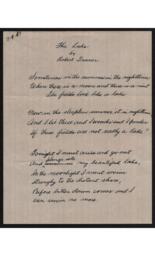 The Lake
by
Robert Duncan
Sometimes in the summer in the nighttime
When there is a moon and there is a mist
The fields look like a lake
Now in the sleepless summer, at in nighttime
And I lie there and I wonder and I ponder
If those fields are not really a lake?
Tonight I must arise and go out
plunge into
And my beautiful lake,
In the moonlight I must swim
strongly to the distant shore,
Before dawn comes and I
can swim no more.